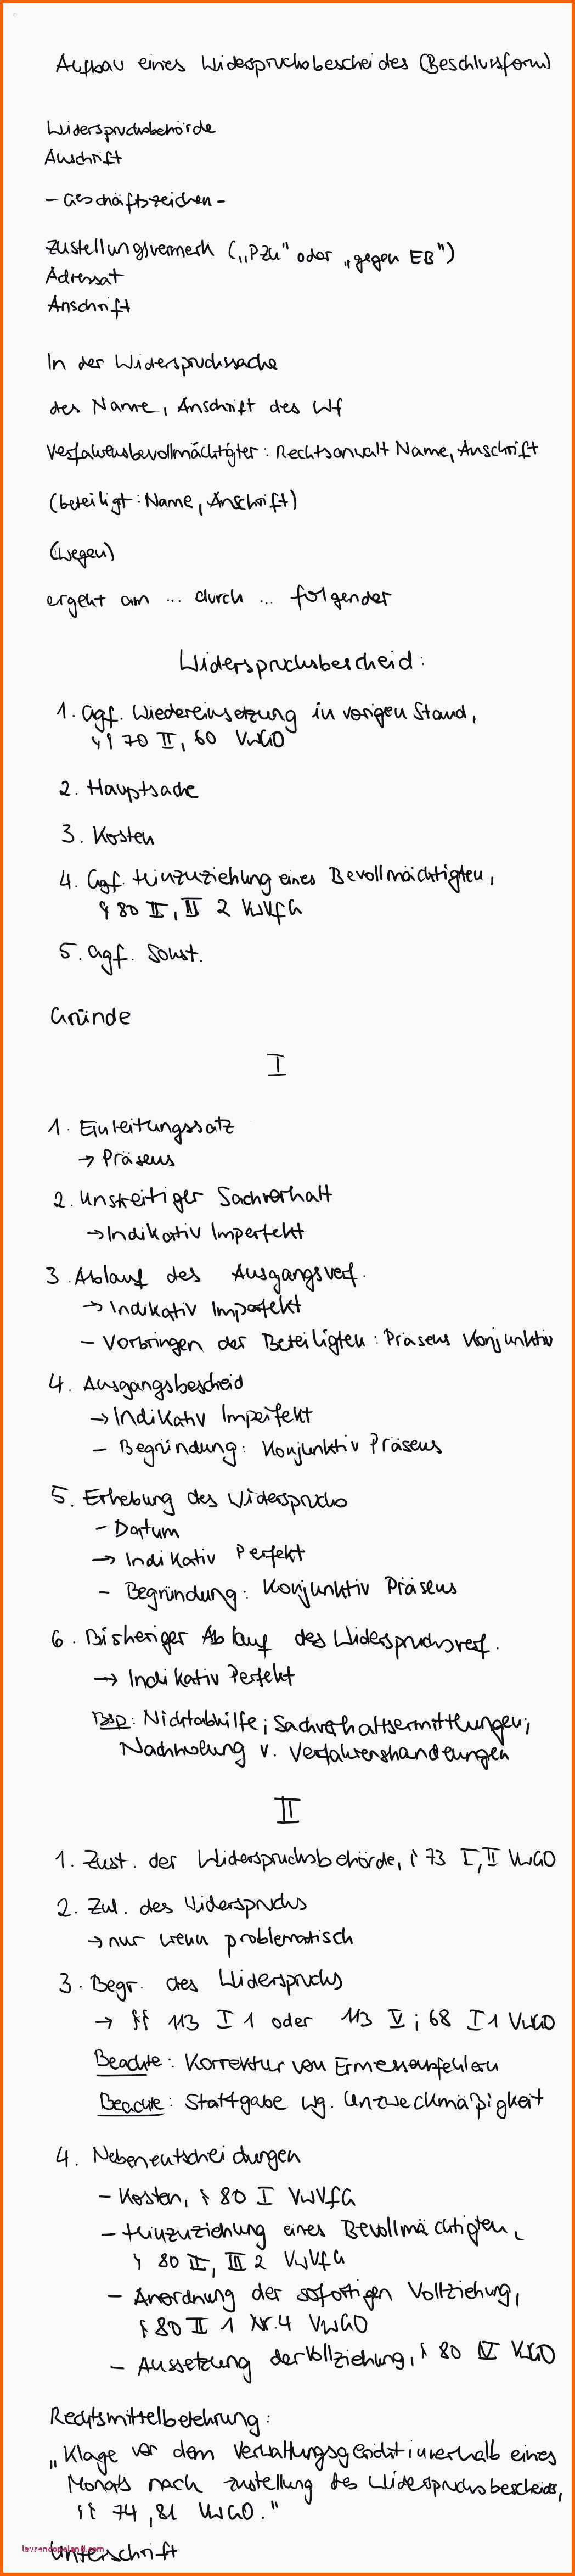 Aufbau eines Widerspruchsbescheides (Beschlussform)
Widerspruchsbehörde
Anschrift
- Geschäftszeichen -
Zustellungsvermerk („PZU" oder „gegen EB")
Adressat
Anschrift
In der Widerspruchssache
des Name, Anschrift des Wf
Verfahrensbevollmächtigter: Rechtsanwalt Name, Anschrift
(beteiligt: Name, Anschrift)
(wegen)
ergeht am ... durch ... folgender
Widerspruchsbescheid:
1. Ggf. Wiedereinsetzung in vorigen Stand,
§§ 70 II, 60 VwGO
2. Hauptsache
3. Kosten
4. Ggf. Hinzuziehung eines Bevollmächtigten,
§ 80 II, III 2 VwVfG
5. Ggf. Sonst.
Gründe
I
1. Einleitungssatz
→ Präsens
2. Unstreitiger Sachverhalt
→ Indikativ Imperfekt
3. Ablauf des Ausgangsverf.
→ Indikativ Imperfekt
- Vorbringen der Beteiligten: Präsens Konjunktiv
4. Ausgangsbescheid
→ Indikativ Imperfekt
- Begründung: Konjunktiv Präsens
5. Erhebung des Widerspruchs
- Datum
→ Indikativ Perfekt
- Begründung: Konjunktiv Präsens
6. Bisheriger Ablauf des Widerspruchsverf.
→ Indikativ Perfekt
Bsp: Nichtabhilfe; Sachverhaltsermittlungen;
Nachholung v. Verfahrenshandlungen
II
1. Zust. der Widerspruchsbehörde, § 73 I, II VwGO
2. Zul. des Widerspruchs
→ nur wenn problematisch
3. Begr. des Widerspruchs
→ §§ 113 I 1 oder 113 V; 68 I 1 VwGO
Beachte: Korrektur von Ermessensfehlern
Beachte: Stattgabe wg. Unzweckmäßigkeit
4. Nebenentscheidungen
- Kosten, § 80 I VwVfG
- Hinzuziehung eines Bevollmächtigten,
§ 80 II, III 2 VwVfG
- Anordnung der sofortigen Vollziehung,
§ 80 II 1 Nr. 4 VwGO
- Aussetzung der Vollziehung, § 80 IV VwGO
Rechtsmittelbelehrung:
„Klage vor dem Verwaltungsgericht innerhalb eines
Monats nach Zustellung des Widerspruchsbescheides,
§§ 74, 81 VwGO."
laurencopeland.com
Unterschrift